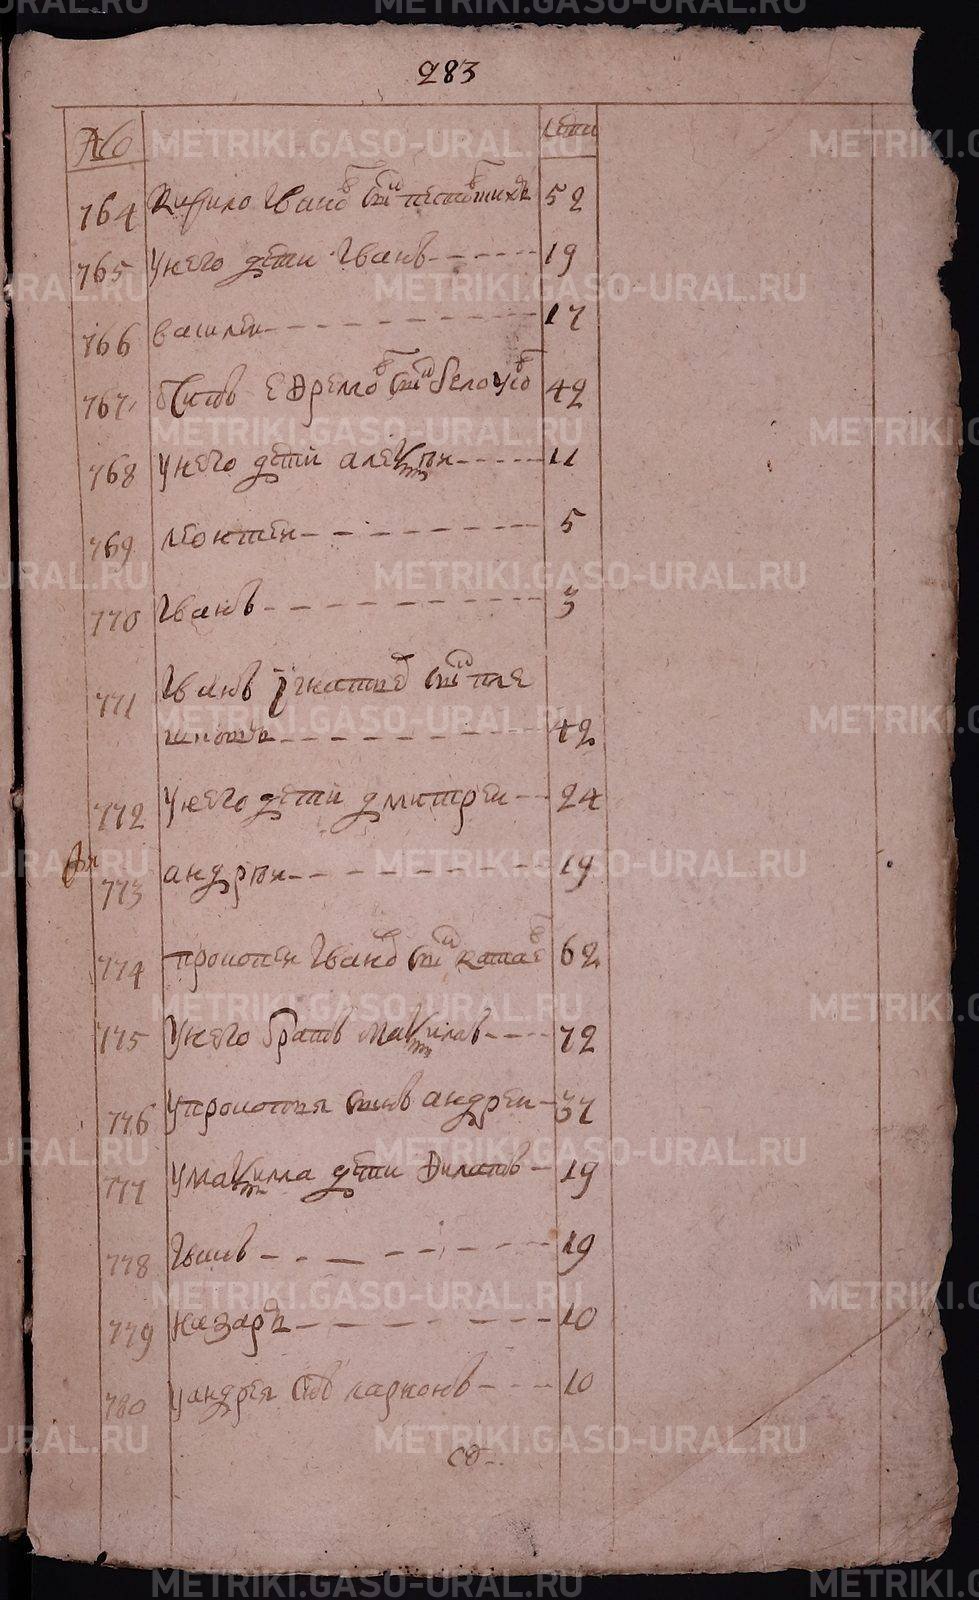 283
№ лѣта
764 Кирило Iвановъ сынъ 52
765 У него дети Iванъ 19
766 василеи 17
767 Титъ Ефремовъ сынъ белоусовъ 42
768 У него дети алеѯѣи 11
769 леонтеи 5
770 Iванъ 3
771 Iванъ Iгнатьевъ сынъ пле
42
772 У него дети дмитреи 24
773 андрѣи 19
774 прокопеи Iвановъ сынъ катаевъ 62
775 У него братъ маѯимъ 72
776 У прокопья сынъ андреи 37
777 У маѯима дети Филатъ 19
778 19
779 назаръ 10
780 У андрея сынъ ларионъ 10
METRIKI.GASO-URAL.RU